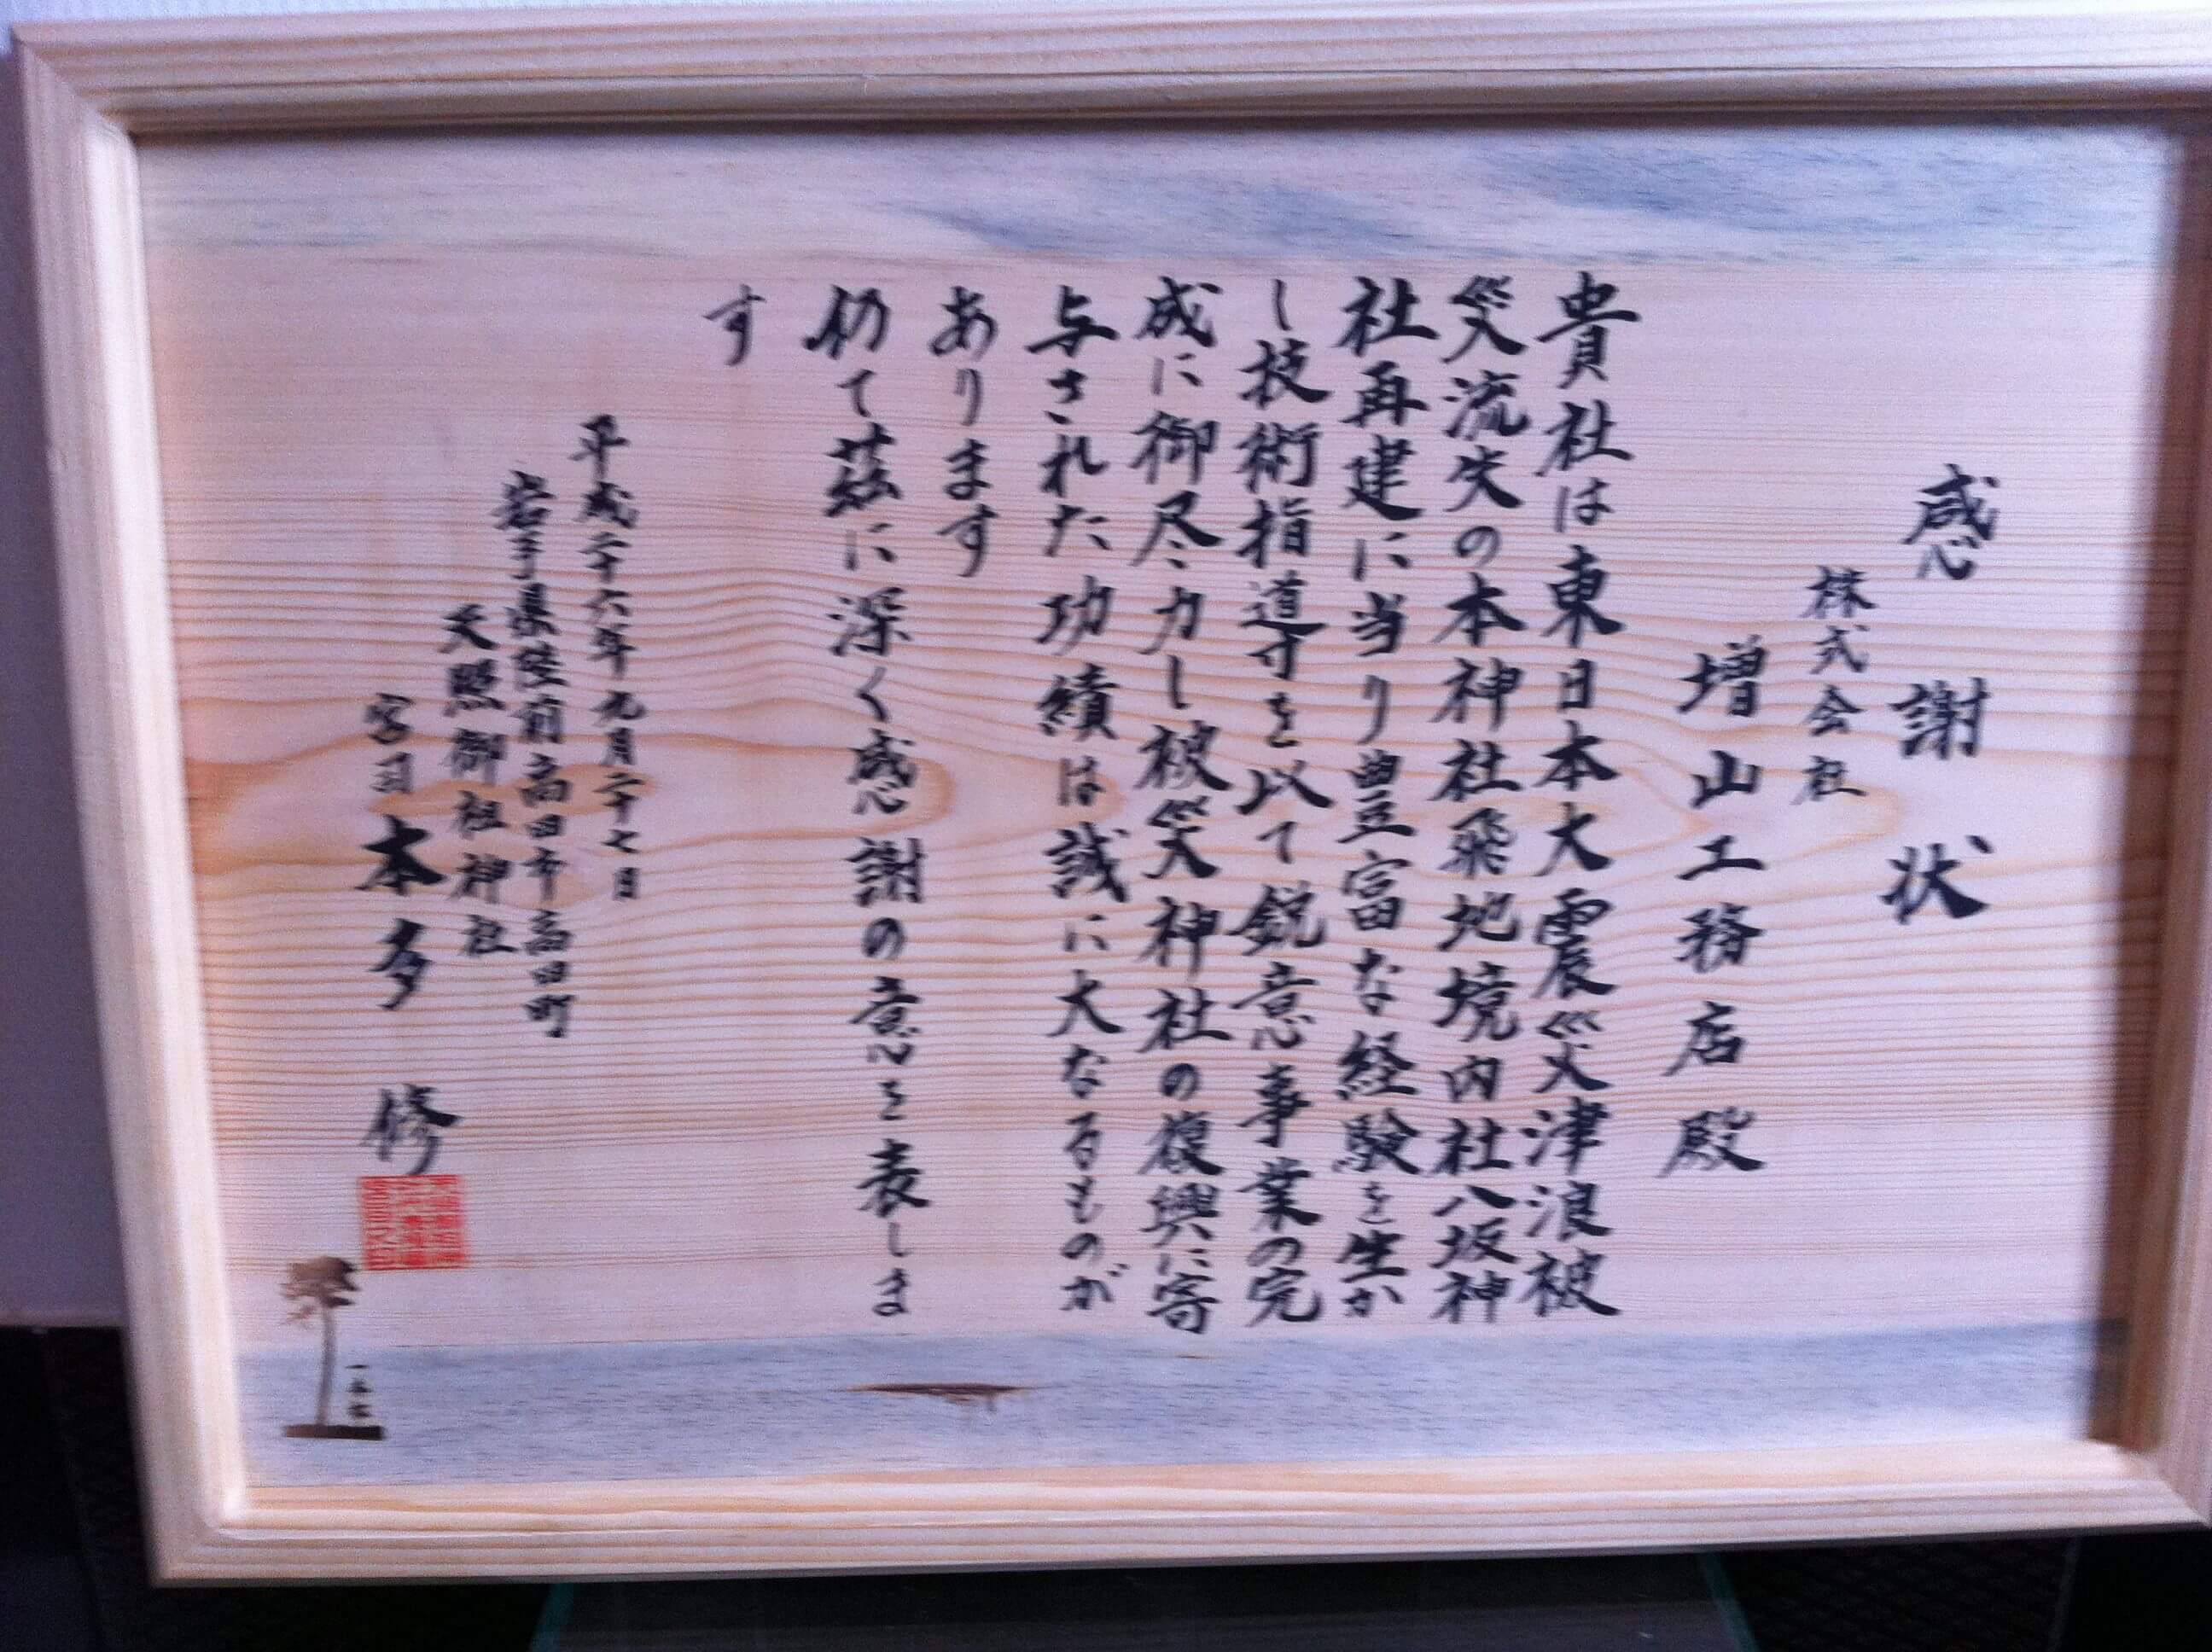 感謝状
株式会社
増山工務店殿
貴社は東日本大震災津浪被
災流失の本神社飛地境内社八坂神
社再建に当り豊富な経験を生か
し技術指導を以て鋭意事業の完
成に御尽力し被災神社の復興に寄
与された功績は誠に大なるものが
あります
仍て茲に深く感謝の意を表しま
す
平成二十六年九月二十七日
岩手県陸前高田市高田町
天照御祖神社
宮司 本多 修